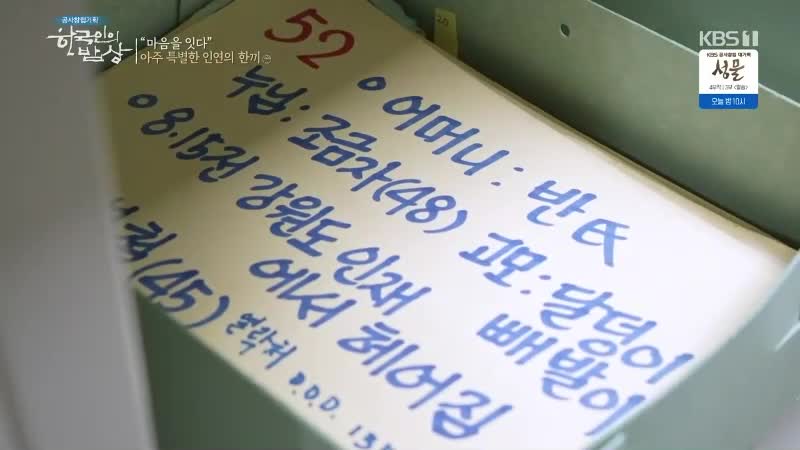 공사창립기획
한국인의 밥상
"마음을 잇다"
아주 특별한 인연의 한끼
KBS 1
KBS 공사창립 대기획
성물
오늘 밤 10시
52
어머니: 반氏
누님: 조금자(48) 고모: 달덩이
빼발이
8.15전 강원도 인재
에서 헤어짐
(45) 연락처 D.O.D.